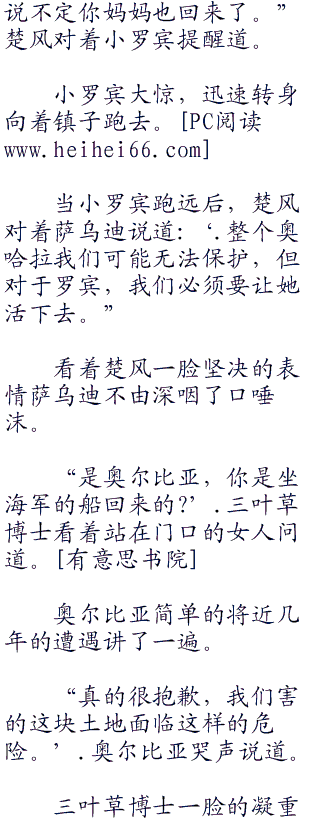 说不定你妈妈也回来了。”
楚风对着小罗宾提醒道。
小罗宾大惊，迅速转身
向着镇子跑去。[PC阅读
www.heihei66.com]
当小罗宾跑远后，楚风
对着萨乌迪说道：‘.整个奥
哈拉我们可能无法保护，但
对于罗宾，我们必须要让她
活下去。”
看着楚风一脸坚决的表
情萨乌迪不由深咽了口唾
沫。
“是奥尔比亚，你是坐
海军的船回来的?’.三叶草
博士看着站在门口的女人问
道。[有意思书院]
奥尔比亚简单的将近几
年的遭遇讲了一遍。
“真的很抱歉，我们害
的这块土地面临这样的危
险。’.奥尔比亚哭声说道。
三叶草博士一脸的凝重